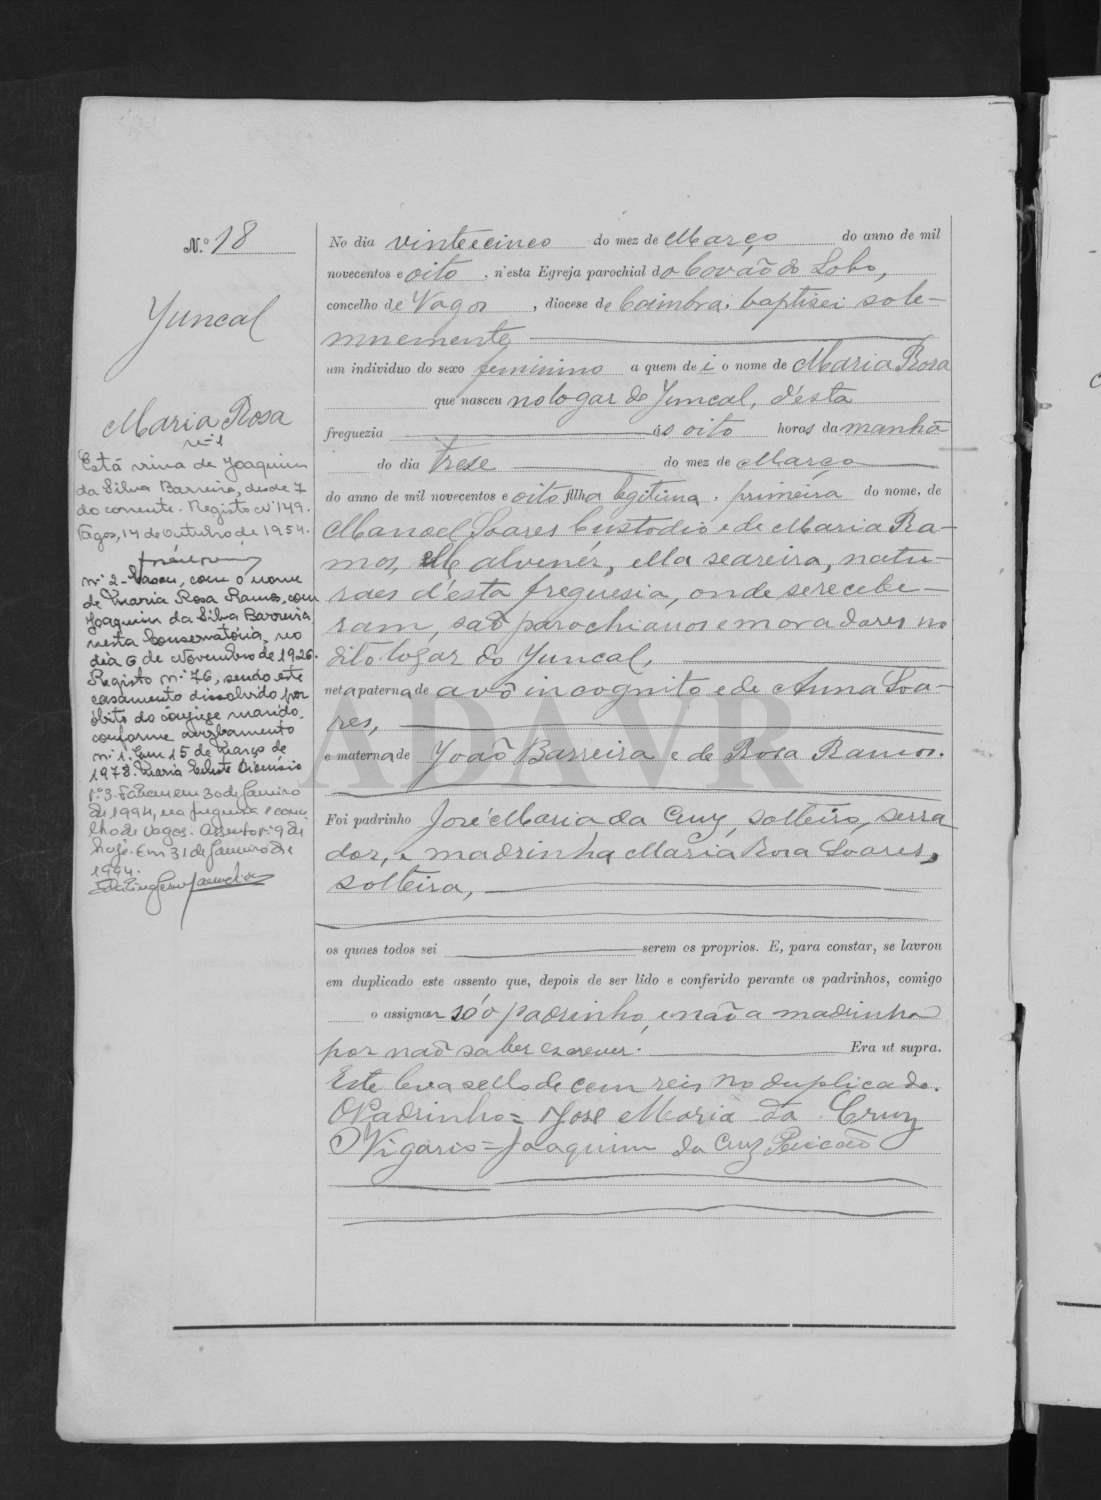 N.º 18
Juncal
Maria Rosa
nº 1
Está viuva de Joaquim
da Silva Barreira, desde 7
do corrente. Registo nº 149.
Vagos, 14 de Outubro de 1954.
nº 2 - Casou, com o nome
de Maria Rosa Ramos, com
Joaquim da Silva Barreira,
nesta Conservatória, no
dia 6 de Novembro de 1926.
Registo nº 76, sendo este
casamento dissolvido por
óbito do cônjuge marido,
conforme averbamento
nº 1. Em 15 de Março de
1978. Maria Celeste Dionísio
nº 3. Faleceu em 30 de Janeiro
de 1994, na freguesia e conce-
lho de Vagos. Assento nº 9 de
hoje. Em 31 de Janeiro de
1994.
No dia vinte e cinco do mez de Março do anno de mil
novecentos e oito, n'esta Egreja parochial do Covão do Lobo,
concelho de Vagos, diocese de Coimbra, baptisei sole-
mnemente
um individuo do sexo feminino a quem dei o nome de Maria Rosa
que nasceu no logar do Juncal, d'esta
freguezia ás oito horas da manhã
do dia trese do mez de Março
do anno de mil novecentos e oito filha legitima, primeira do nome, de
Manoel Soares Custodio e de Maria Ra-
mos, elle alvenér, ella seareira, natu-
raes d'esta freguesia, onde se recebe-
ram, são parochianos e moradores no
dito logar do Juncal,
neta paterna de avô incognito e de Anna Soa-
res,
e materna de João Barreira e de Rosa Ramos.
Foi padrinho José Maria da Cruz, solteiro, serra
dor, e madrinha Maria Rosa Soares,
solteira,
os quaes todos sei serem os proprios. E, para constar, se lavrou
em duplicado este assento que, depois de ser lido e conferido perante os padrinhos, comigo
o assignou só o padrinho, e não a madrinha
por não saber escrever. Era ut supra.
Este leva sello de cem reis no duplicado.
O Padrinho = Jose Maria da Cruz
O Vigario = Joaquim da Cruz
ADAVR